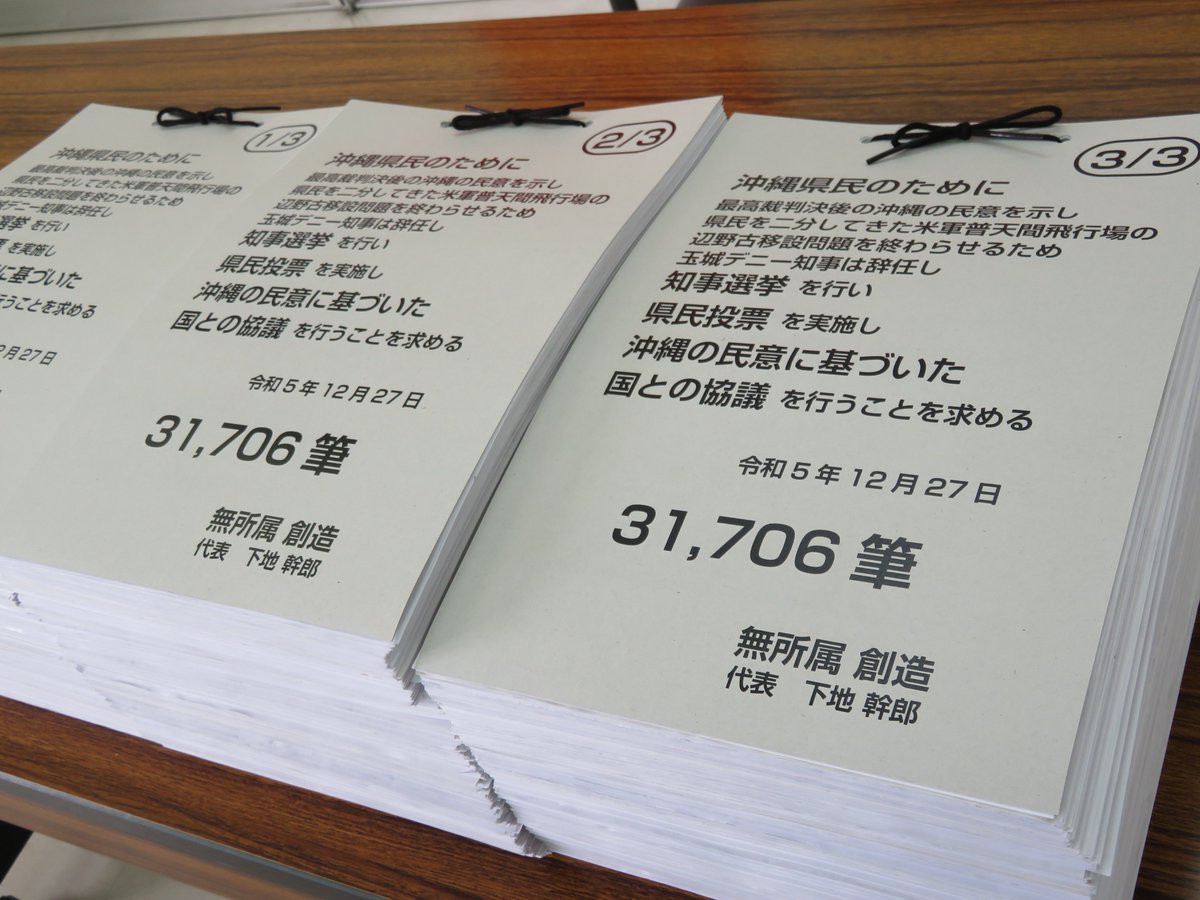 1/3
沖縄県民のために
最高裁判決後の沖縄の民意を示し
県民を二分してきた米軍普天間飛行場の
辺野古移設問題を終わらせるため
城デニー知事は辞任し
選挙 を行い
を実施し
に基づいた
行うことを求める
月27日
2/3
沖縄県民のために
最高裁判決後の沖縄の民意を示し
県民を二分してきた米軍普天間飛行場の
辺野古移設問題を終わらせるため
玉城デニー知事は辞任し
知事選挙 を行い
県民投票 を実施し
沖縄の民意に基づいた
国との協議 を行うことを求める
令和5年12月27日
31,706 筆
無所属 創造
代表 下地 幹郎
3/3
沖縄県民のために
最高裁判決後の沖縄の民意を示し
県民を二分してきた米軍普天間飛行場の
辺野古移設問題を終わらせるため
玉城デニー知事は辞任し
知事選挙 を行い
県民投票 を実施し
沖縄の民意に基づいた
国との協議 を行うことを求める
令和5年12月27日
31,706 筆
無所属 創造
代表 下地 幹郎